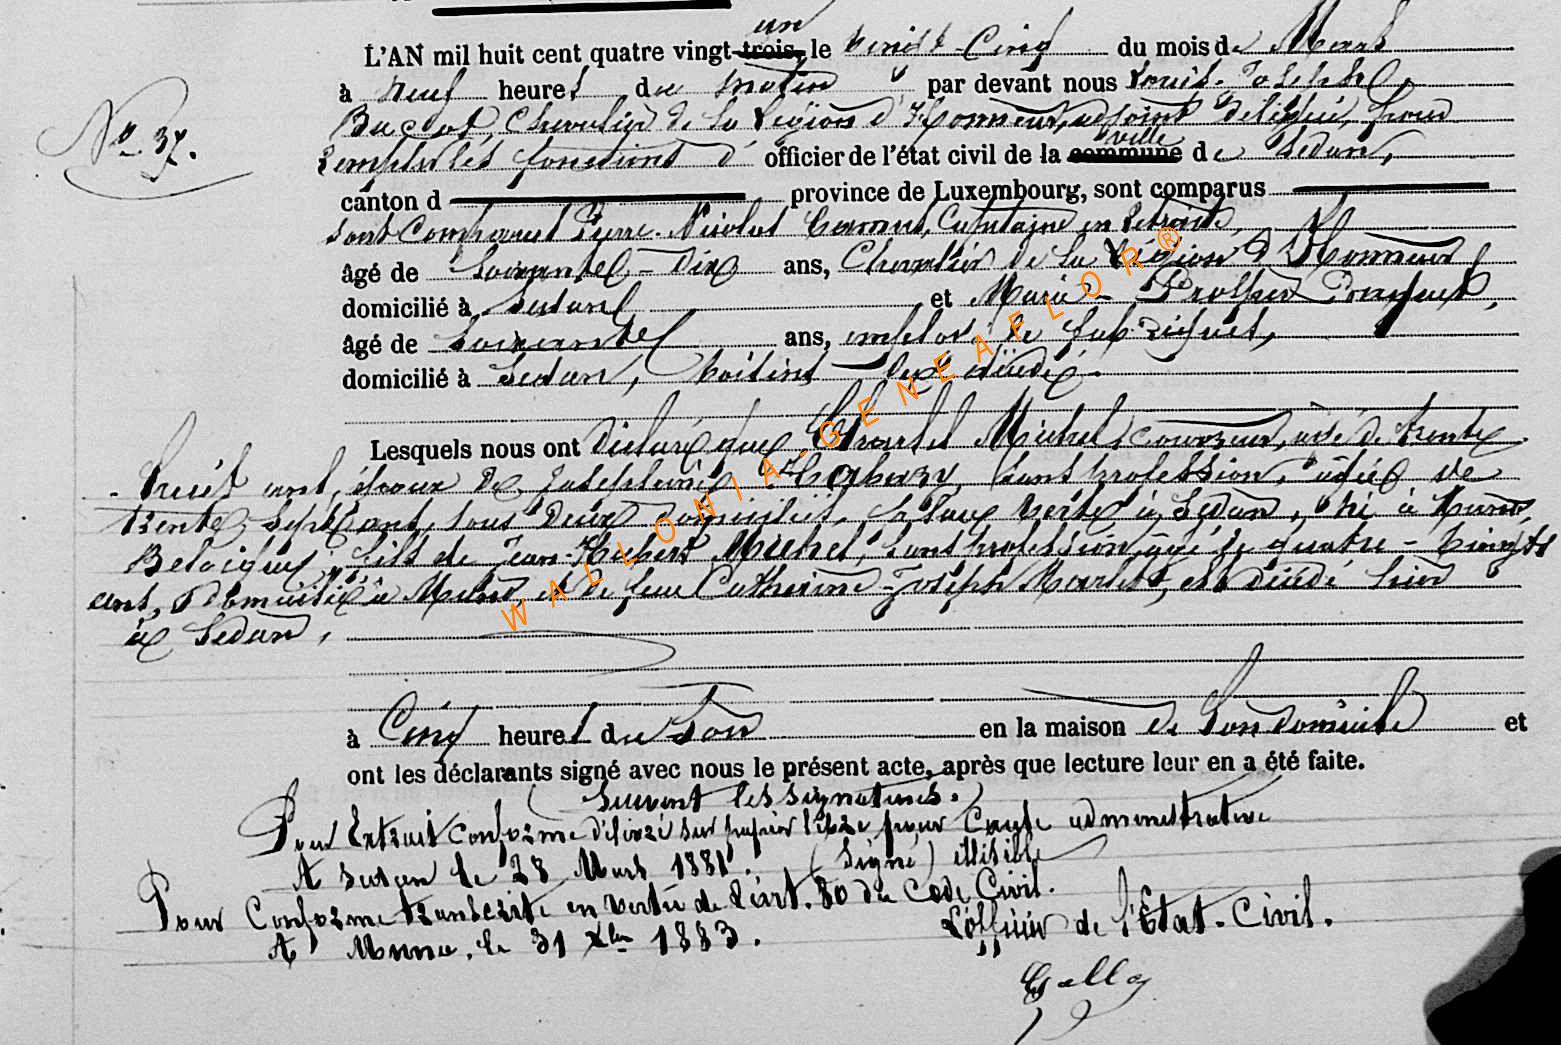 un
L'AN mil huit cent quatre vingt trois, le vingt-Cinq du mois de Mars
N° 37.
à Neuf heures du matin par devant nous Louis-Joseph
Bacot, Chevalier de la Légion d'Honneur, adjoint délégué pour
remplir les fonctions d' officier de l'état civil de la commune ville de Sedan,
canton d province de Luxembourg, sont comparus
sont Comparus Pierre-Nicolas Capitaine en retraite,
âgé de Soixante-Dix ans, Chevalier de la Légion d'Honneur
domicilié à Sedan et Marie-
âgé de Soixante ans, employé de fabriques,
domicilié à Sedan, Voisins du décédé.
Lesquels nous ont Déclaré que Charles Michel, couvreur, âgé de trente
huit ans, époux de Joséphine sans profession, âgée de
trente sept ans, tous deux domiciliés place verte à Sedan, né à Muno,
Belgique, fils de Jean-Hubert Michel, sans profession, âgé de quatre-vingts
ans, domicilié à Muno et de feue Catherine-Joseph est décédé hier
à Sedan,
à Cinq heures du Soir en la maison de Son domicile et
ont les déclarants signé avec nous le présent acte, après que lecture leur en a été faite.
(Suivent les signatures.)
Pour Extrait conforme délivré sur papier libre pour Cause administrative
A Sedan le 28 Mars 1881. (Signé) illisible
Pour Conforme transcrite en vertu de l'art. 80 du Code Civil.
A Muno, le 31 Xbre 1883. L'officier de l'Etat-Civil.
WALLONIA-GENEAFLOR®